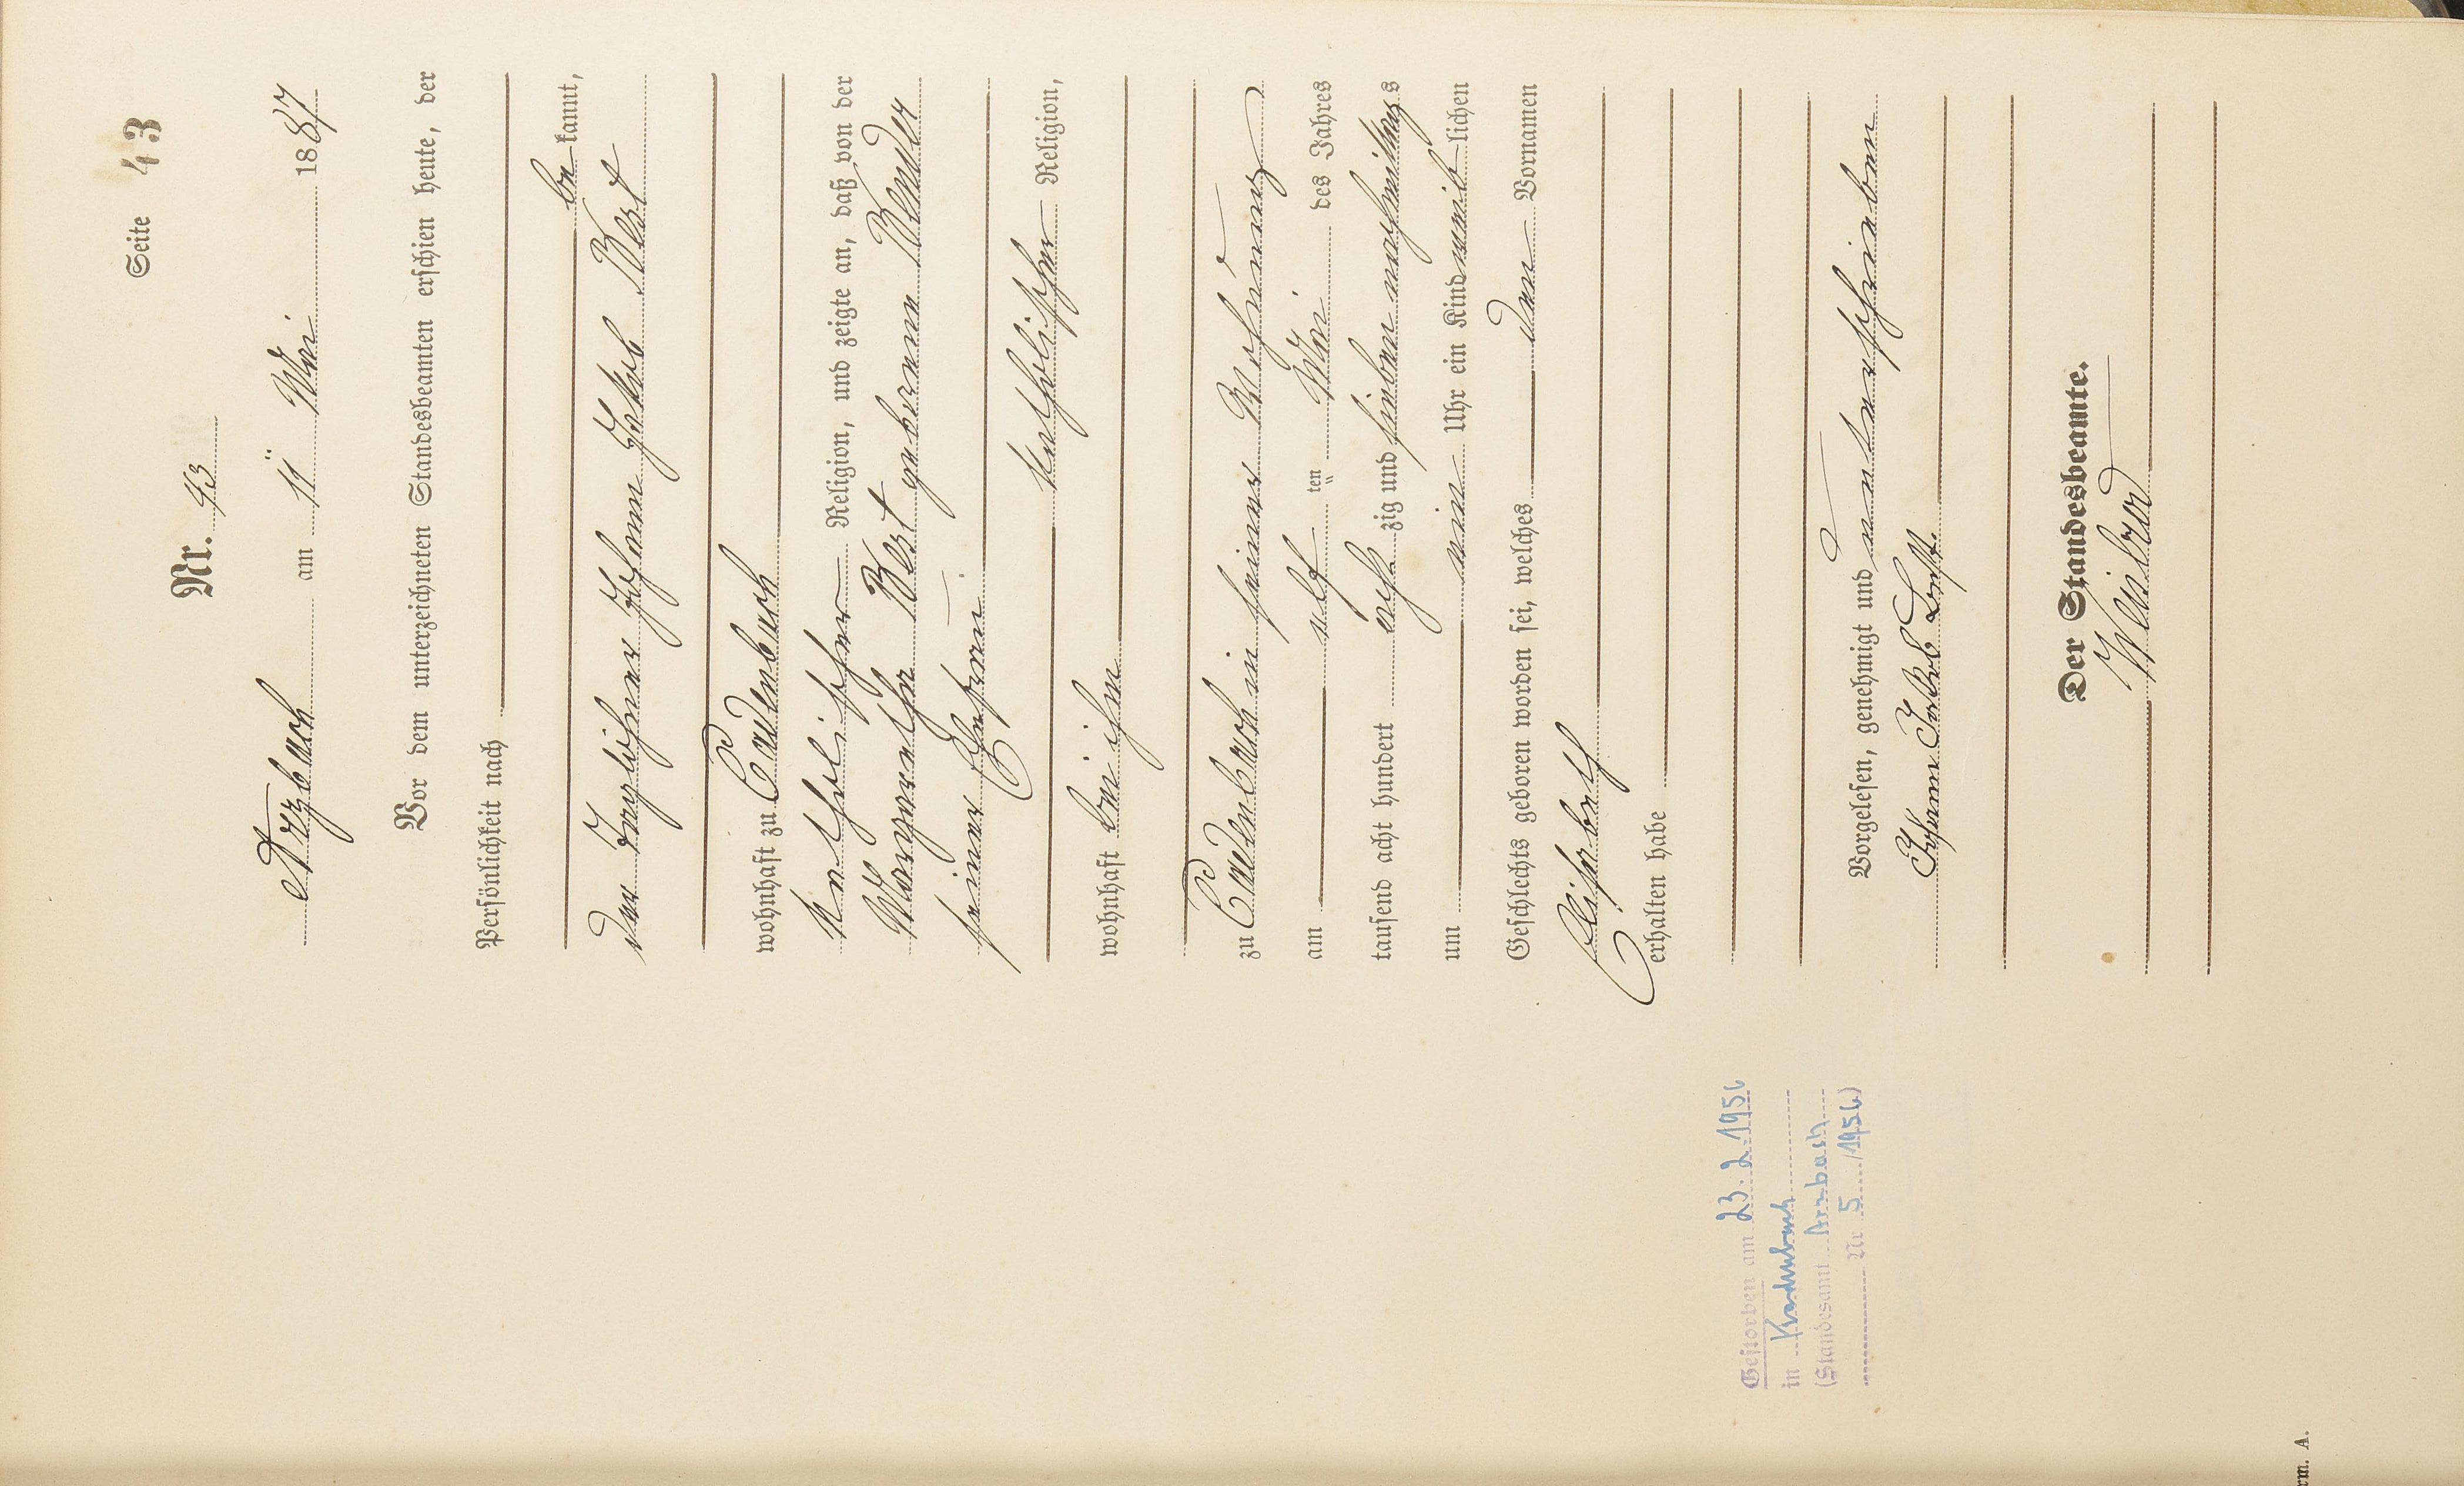 Seite 43
Nr. 43
Arzbach am 11" Mai 1887
Vor dem unterzeichneten Standesbeamten erschien heute, der
Persönlichkeit nach
be kannt,
der Taglöhner Johann Jakob Best
wohnhaft zu Cadenbach
katholischer Religion, und zeigte an, daß von der
Margaretha Best geborene Bender
seiner Ehefrau
katholischer Religion,
wohnhaft bei ihm
zu Cadenbach in seiner Wohnung
am elf ten Mai des Jahres
tausend acht hundert acht zig und sieben nachmittags
um ein Uhr ein Kind weib lichen
Geschlechts geboren worden sei, welches den Vornamen
Elisabeth
erhalten habe
Vorgelesen, genehmigt und unterschrieben
Johann Jakob Best.
Der Standesbeamte.
Gestorben am 23. 2. 1956
in Kadenbach
(Standesamt Arzbach
Nr 5 /1956)
rm. A.